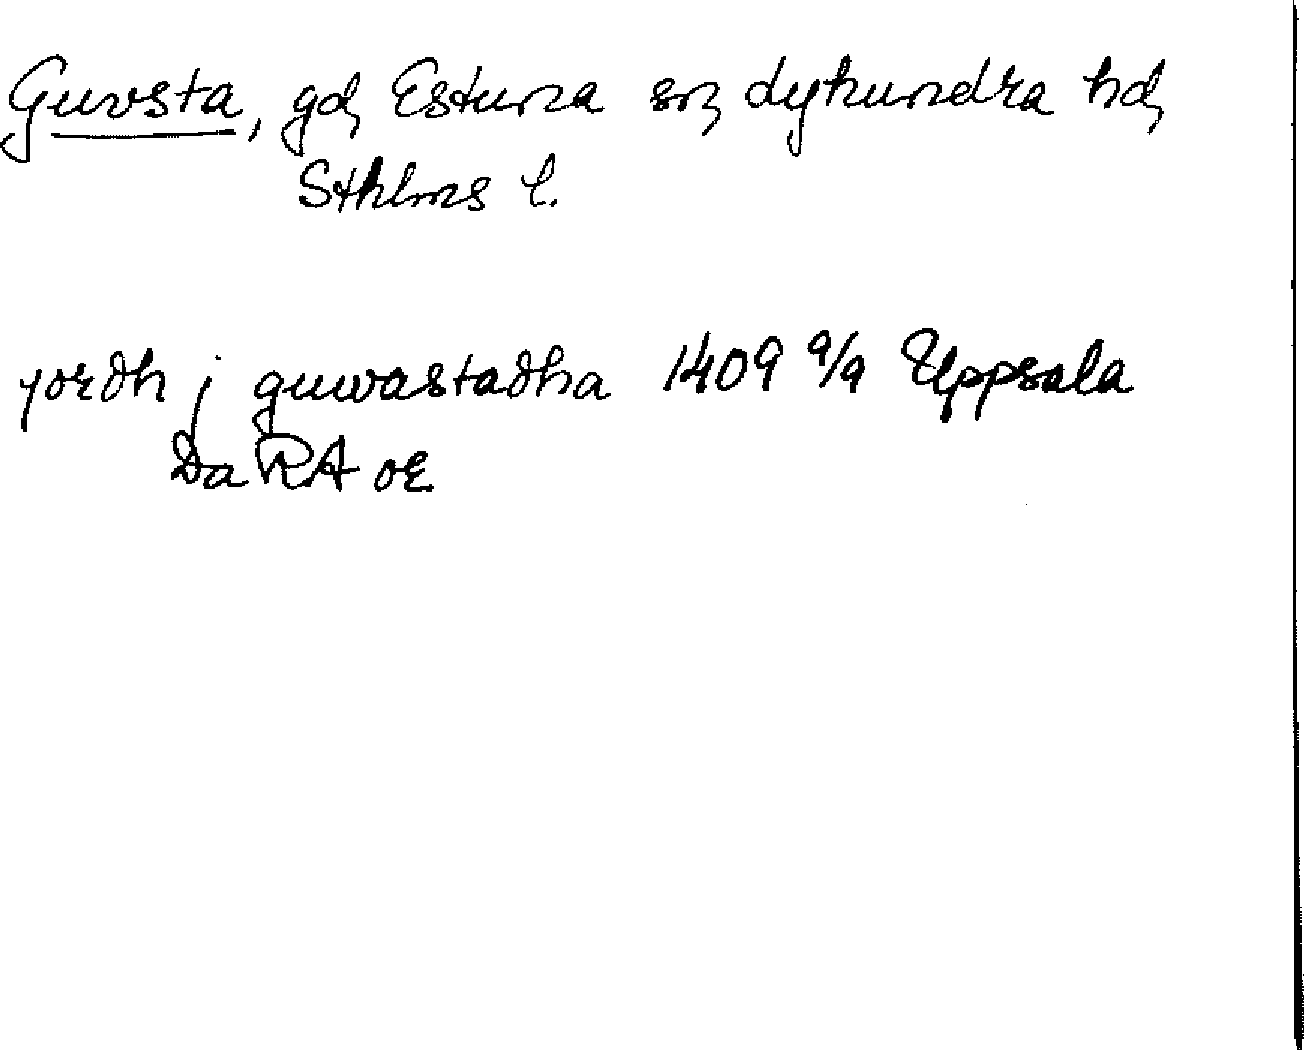 Guvsta, gd, Estuna sn, Lyhundra hd,
Sthlms l.
jordh j guwastadha 1409 9/9 Uppsala
Da RA or.